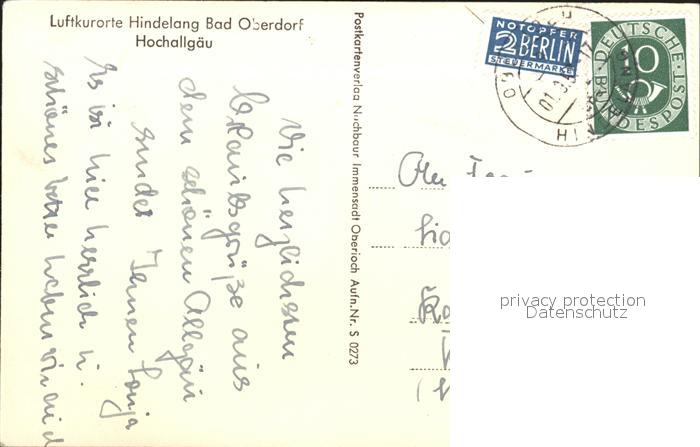 Luftkurorte Hindelang Bad Oberdorf
Hochallgäu
Die herzlichsten
Urlaubsgrüße aus
dem schönen Allgäu
sendet Ihnen Sonja
Es ist hier herrlich u.
schönes Wetter haben wir auch
Postkartenverlag Nirchbaur Immenstadt Oberjoch Aufn.Nr. S 0273
NOTOPFER
2 BERLIN
STEUERMARKE
DEUTSCHE
BUNDESPOST
10
privacy protection
Datenschutz